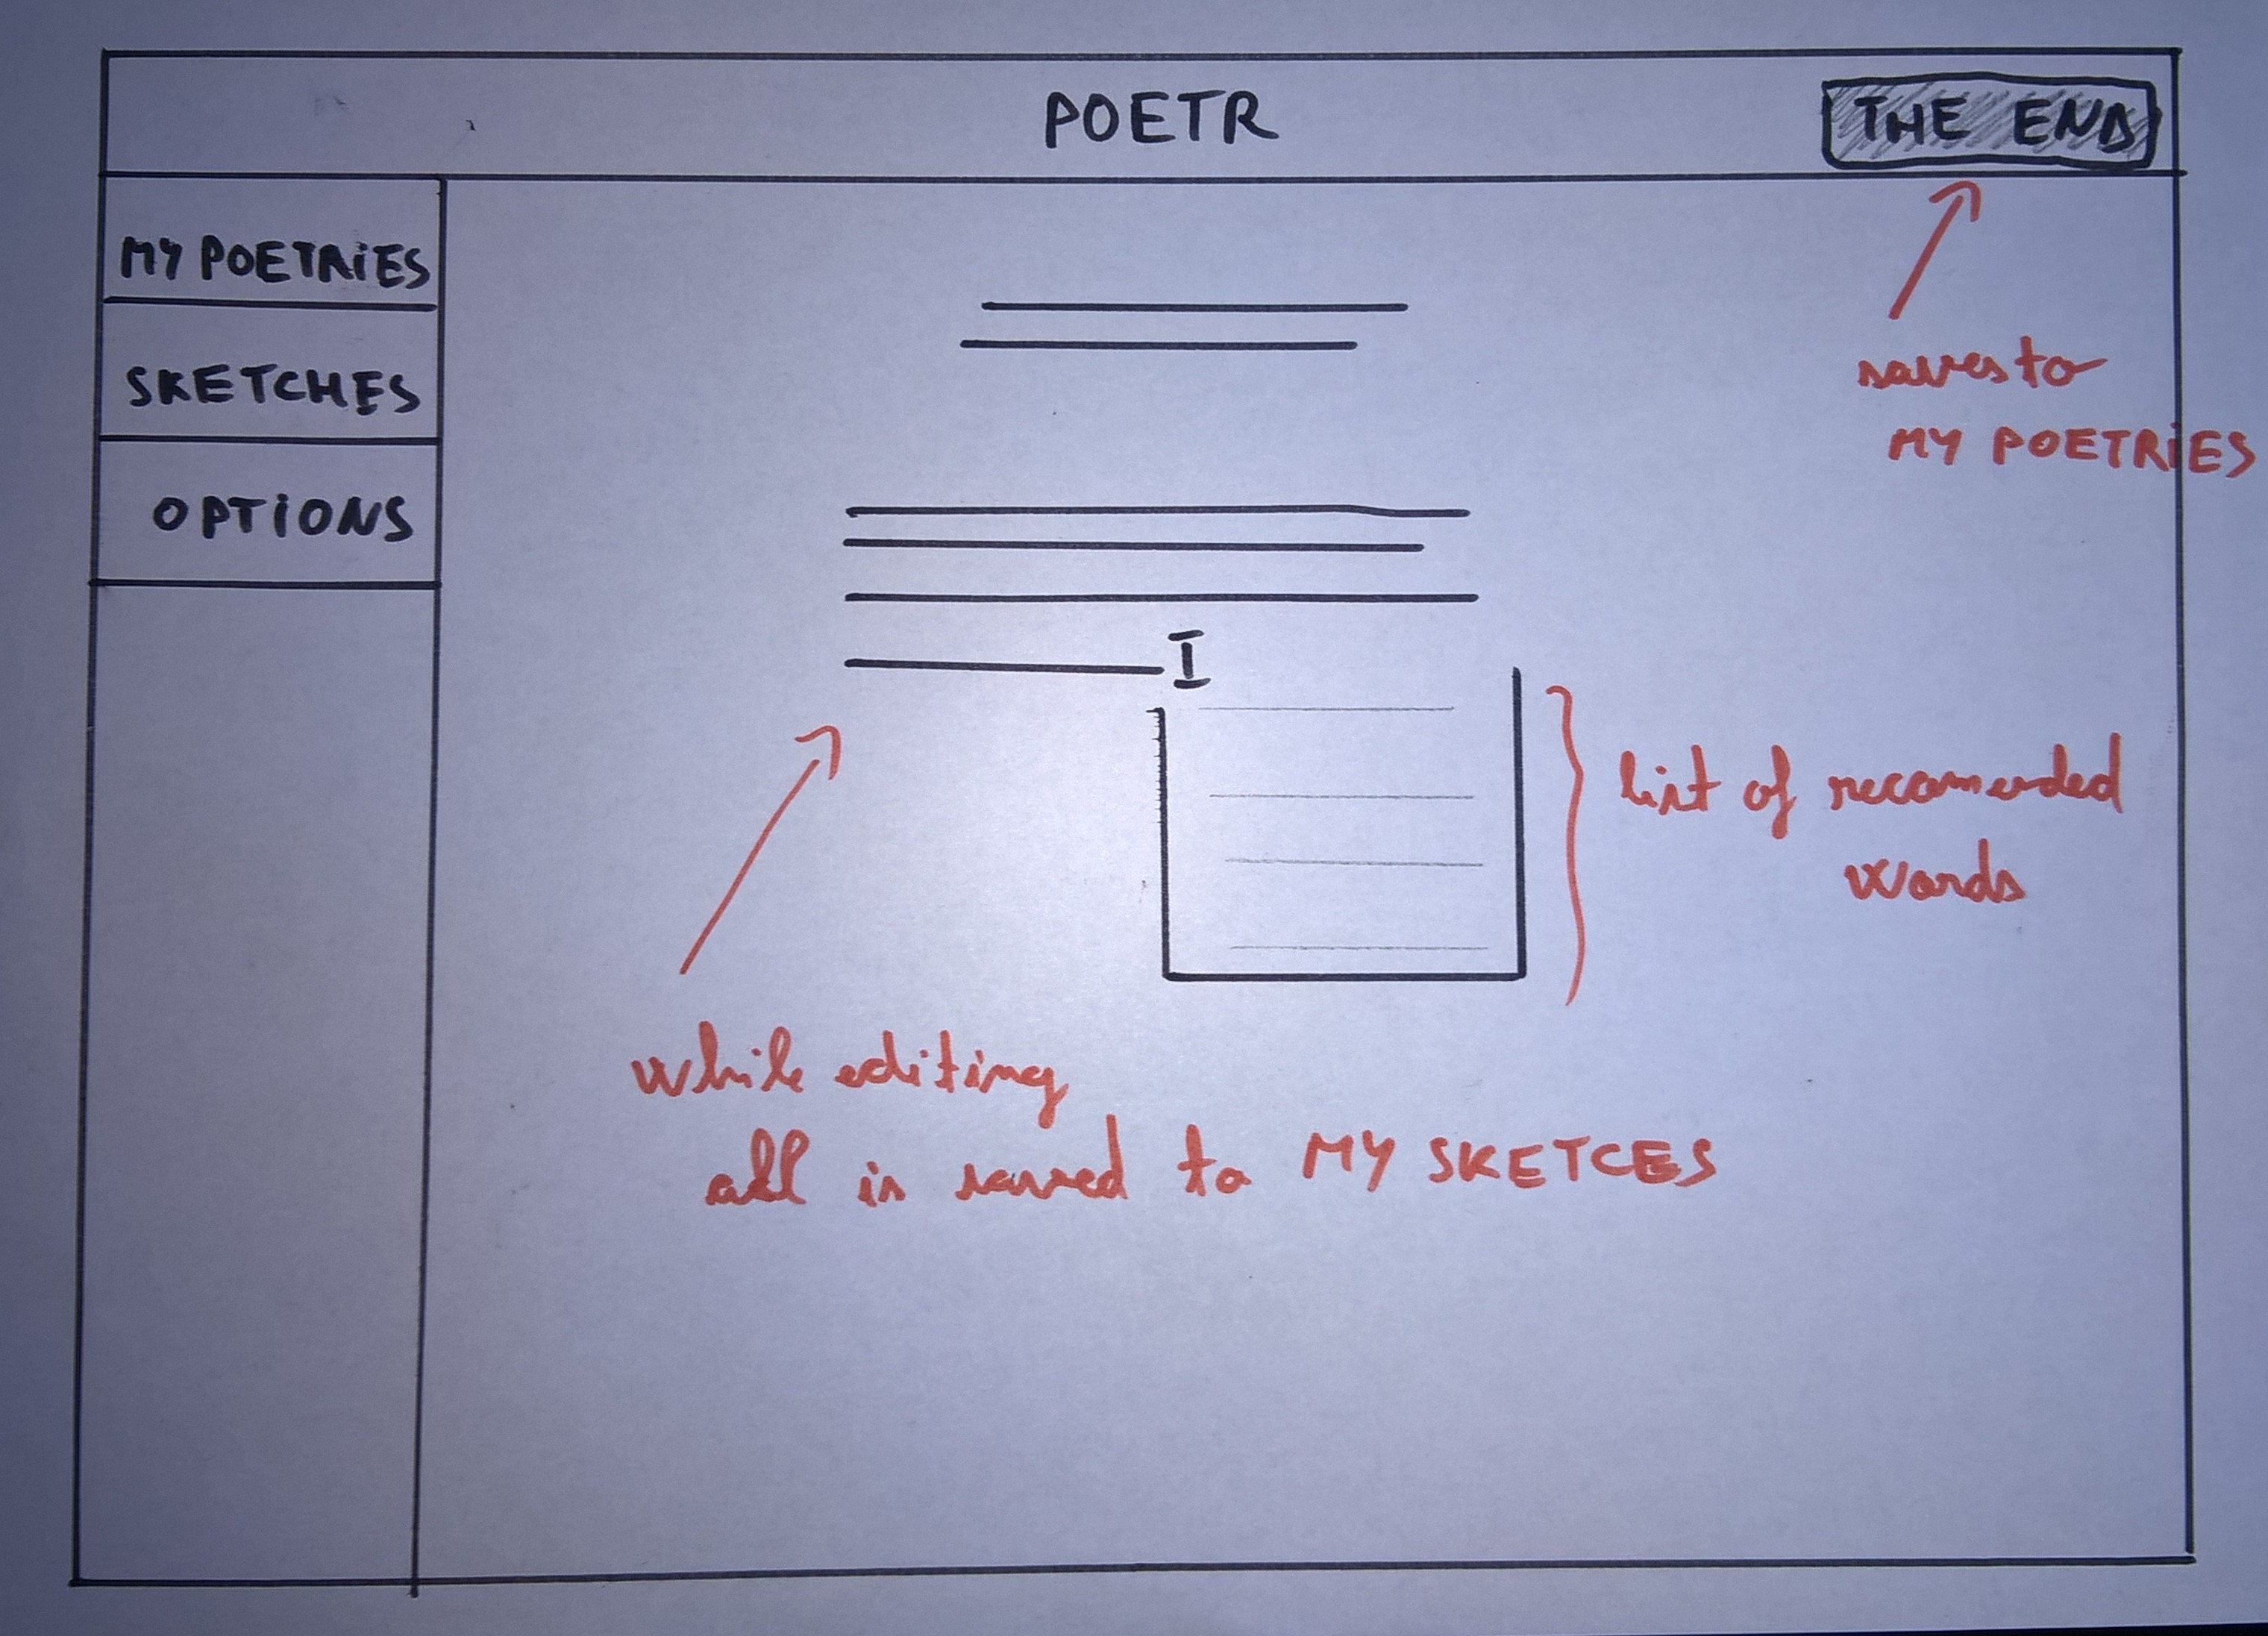 POETR
THE END
MY POETRIES
SKETCHES
OPTIONS
saves to
MY POETRIES
list of recomended
words
while editing
all is saved to MY SKETCES